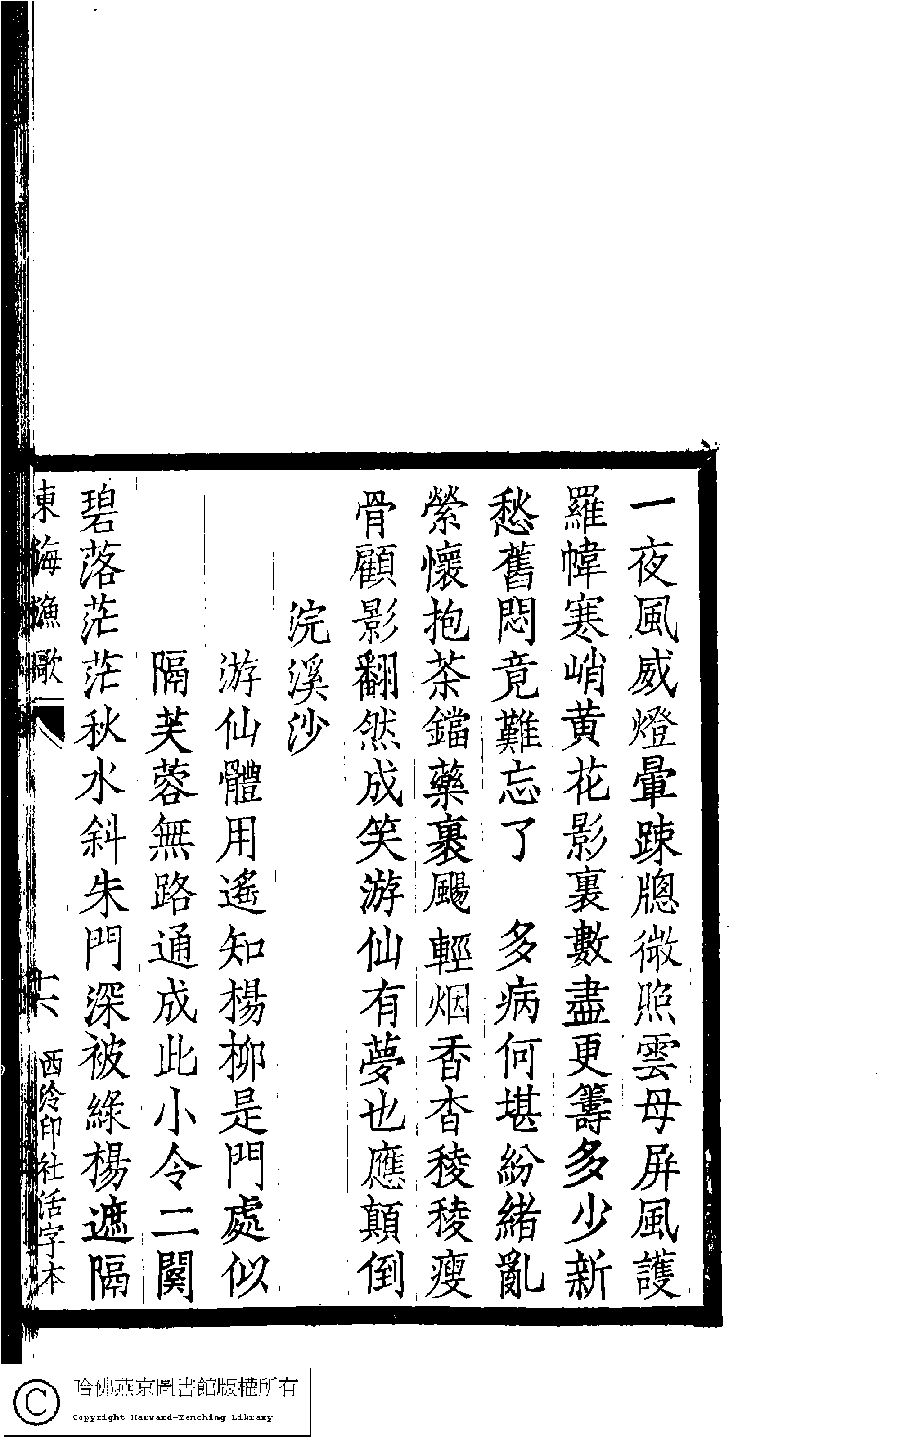 一夜風威燈暈踈牕微照雲母屏風護
羅幃寒峭黄花影裏數盡更籌多少新
愁舊悶竟難忘了　多病何堪紛緒亂
縈懷抱茶鐺藥裹颺輕烟香杳稜稜瘦
骨顧影翻然成笑游仙有夢也應顛倒
浣溪沙
游仙體用遙知楊柳是門處似
隔芙蓉無路通成此小令二闋
碧落茫茫秋水斜朱門深被綠楊遮隔
東海漁歌
十六
西泠印社活字本
哈佛燕京圖書館版權所有
Copyright Harvard-Yenching Library